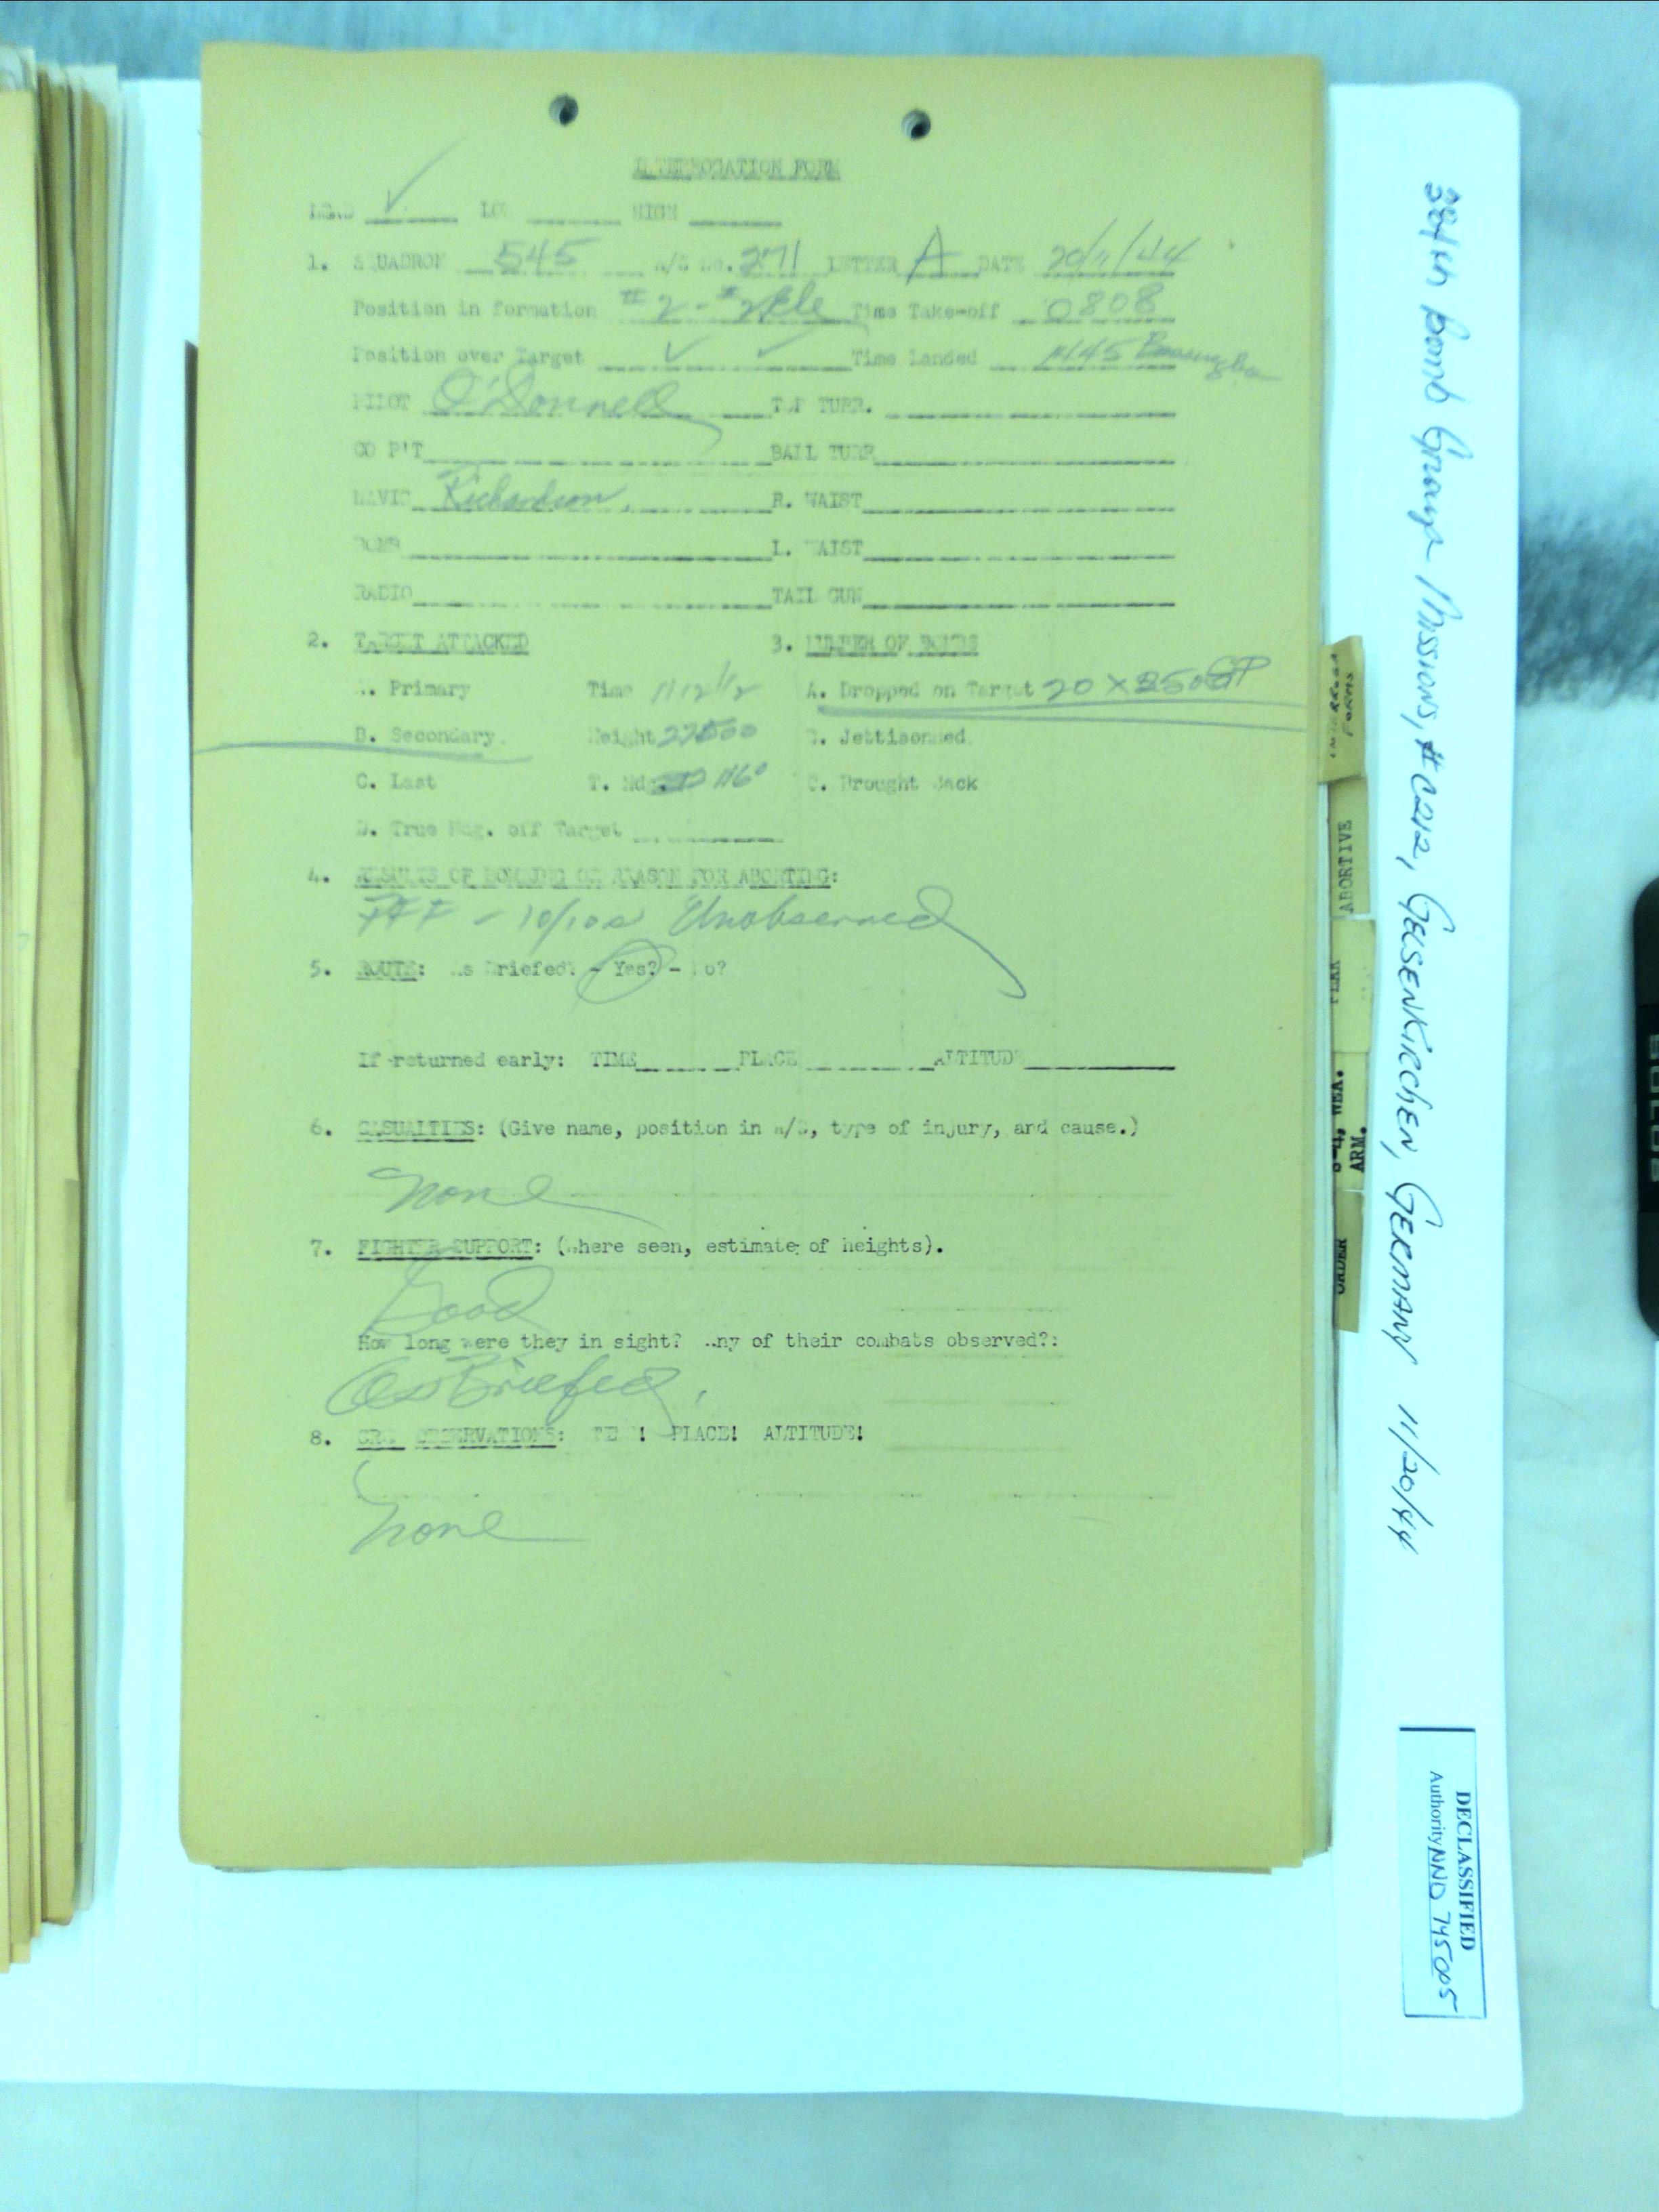 INTERROGATION FORM
LEAD ✓ LOW HIGH
1. SQUADRON 545 A/C No. 271 LETTER A DATE 20/11/44
Position in formation #2 - #2 Ele Time Take-off 0808
Position over Target ✓ ✓ Time Landed 1445
PILOT O'Donnell TOP TURR.
CO P'T BALL TURR
NAVIG Richardson. R. WAIST
BOMB L. WAIST
RADIO TAIL GUN
2. TARGET ATTACKED 3. NUMBER OF BOMBS
A. Primary Time 1112 1/2 A. Dropped on Target 20 X 250 GP
B. Secondary. Height 27500 B. Jettisonned
C. Last T. Hdg. 116° C. Brought Back
D. True Hdg. off Target
4. RESULTS OF BOMBING OR REASON FOR ABORTING:
PFF - 10/10s Unobserved
5. ROUTE: As Briefed? - Yes? - No?
If returned early: TIME PLACE ALTITUDE
6. CASUALTIES: (Give name, position in A/C, type of injury, and cause.)
None
7. FIGHTER SUPPORT: (Where seen, estimate of heights).
Good
How long were they in sight? Any of their combats observed?:
As Briefed.
8. OBSERVATIONS: PLACE! ALTITUDE!
None
INTERROGA
FORMS
ABORTIVE
FLAK
S-4, WEA.
ARM.
ORDER
384th Bomb Group Missions, #C212, GELSENKIRCHEN, GERMANY 11/20/44
DECLASSIFIED
Authority NND 745005